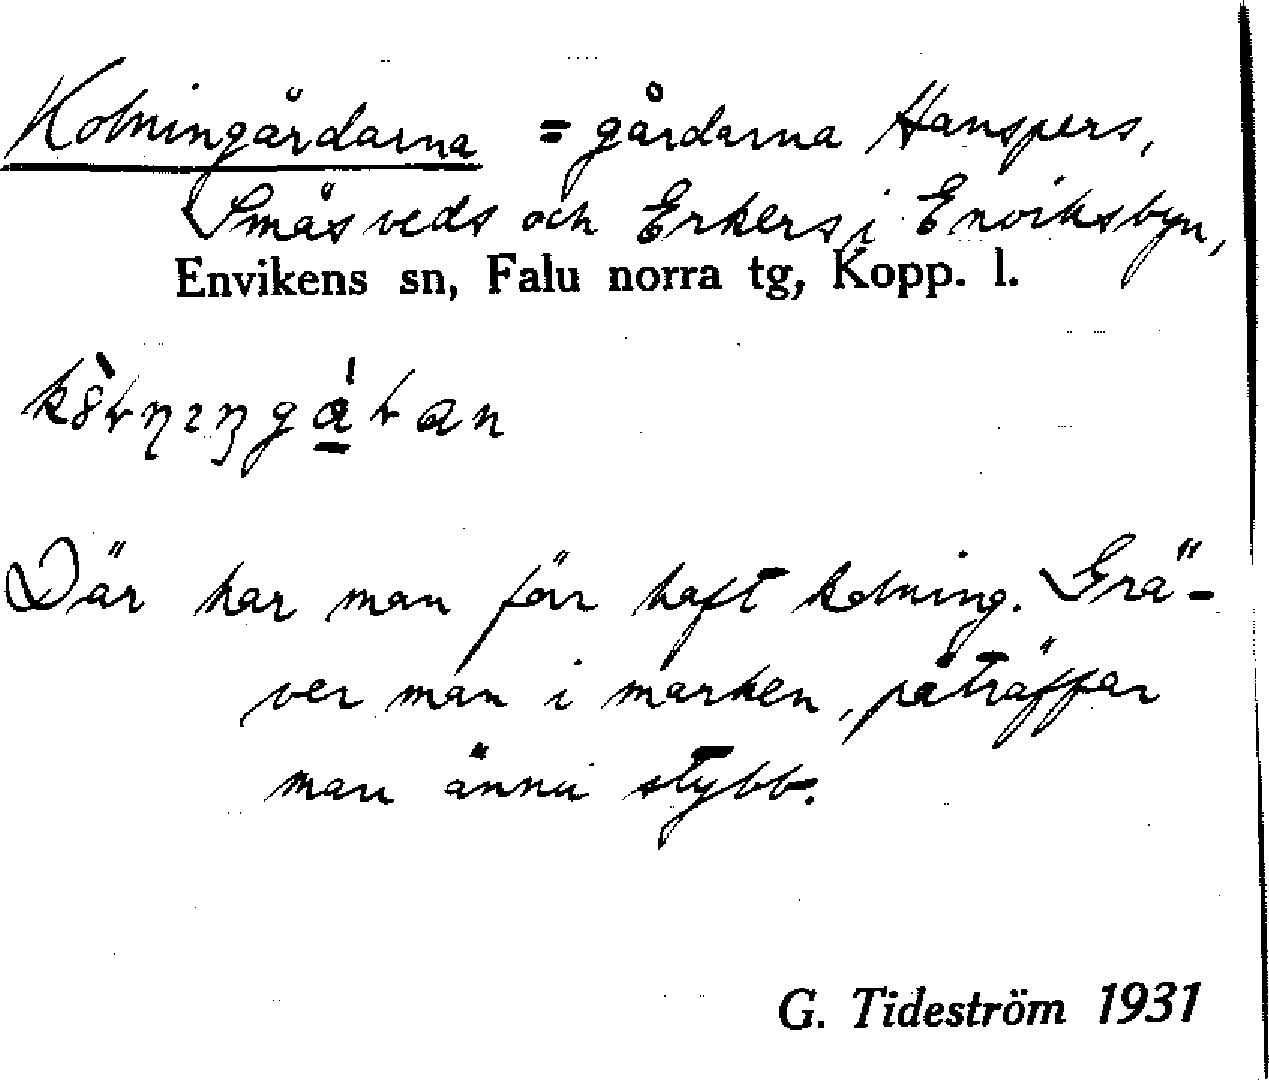 Kolningårdarna = gårdarna Hanspers,
Smäsveds och Erkers i Enviksbyn,
Envikens sn, Falu norra tg, Kopp. l.
Där har man förr haft kolning. Grä-
ver man i marken, påträffar
man ännu stybb.
G. Tideström 1931